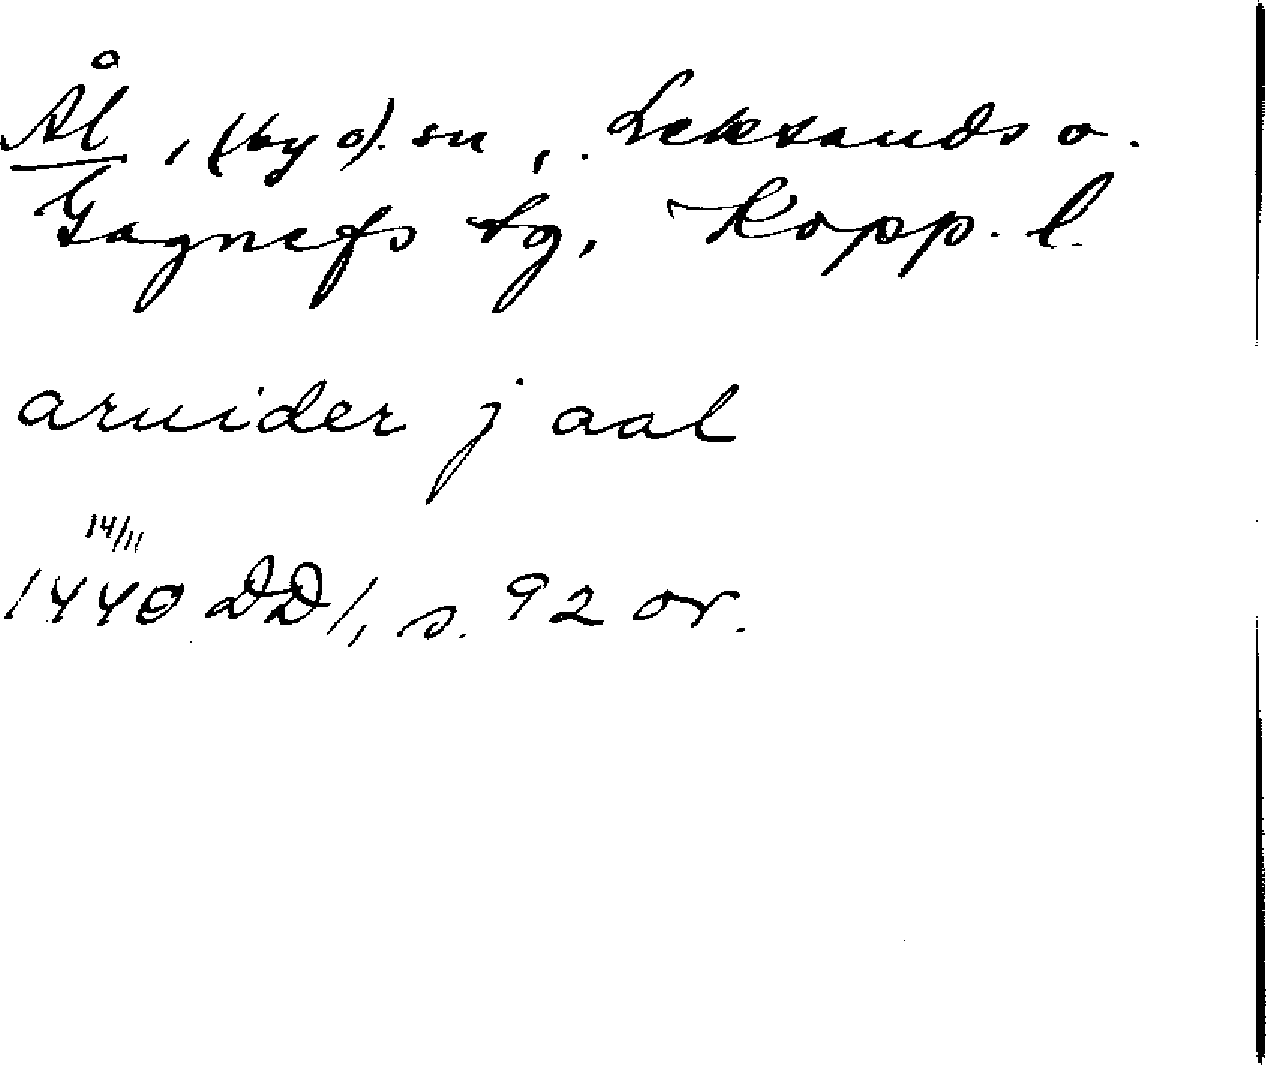 Ål, (by o). sn, Leksands o.
Gagnefs tg, Kopp. l.
aruider j aal
14/11
1440 DD 1, s. 92 or.